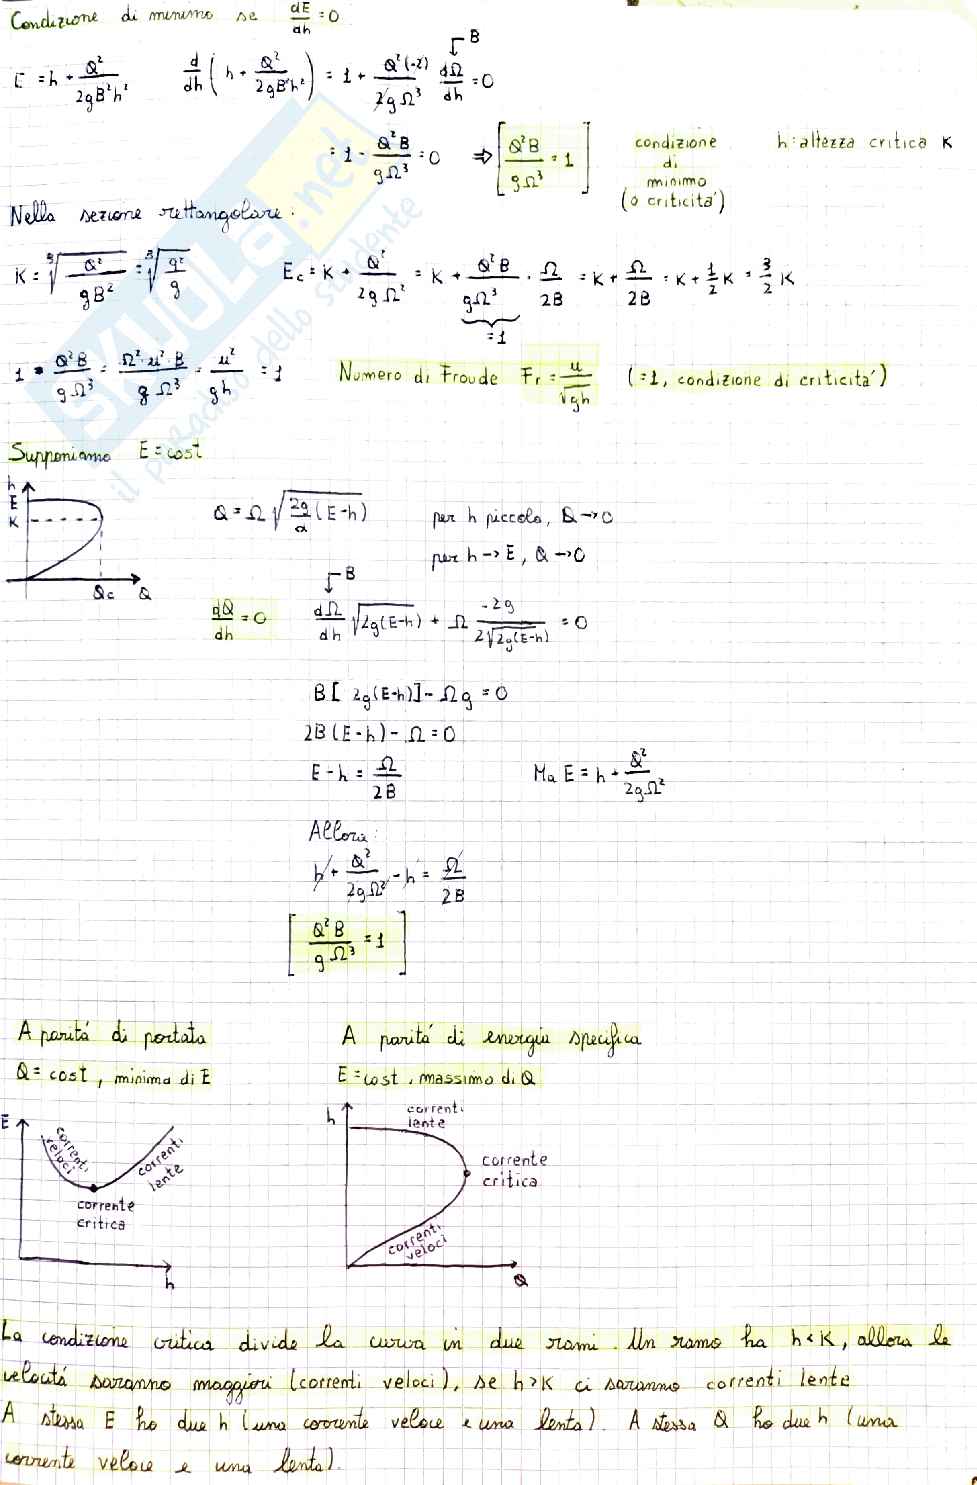 Condizione di minimo se dE/dh = 0
E = h + Q²/2gB²h²   d/dh (h + Q²/2gB²h²) = 1 + Q²(-2)/2gΩ³ dΩ/dh = 0   → B
= 1 - Q²B/gΩ³ = 0 ⇒ [Q²B/gΩ³ = 1]   condizione di minimo (o criticitá)   h: altezza critica K
Nella sezione rettangolare:
K = ∛(Q²/gB²) = ∛(q²/g)   Ec = K + Q²/2gΩ² = K + Q²B/gΩ³ · Ω/2B = K + Ω/2B = K + 1/2 K = 3/2 K
=1
1 = Q²B/gΩ³ = Ω²·u²·B/gΩ³ = u²/gh = 1   Numero di Froude Fr = u/√gh   (=1, condizione di criticitá)
Supponiamo E = cost
h
E
K
Qc Q
Q = Ω √(2g/α (E-h))   per h piccolo, Q → 0
per h → E, Q → 0
→ B
dQ/dh = 0   dΩ/dh √2g(E-h) + Ω -2g/2√2g(E-h) = 0
B[2g(E-h)] - Ωg = 0
2B(E-h) - Ω = 0
E - h = Ω/2B   Ma E = h + Q²/2gΩ²
Allora:
h + Q²/2gΩ² - h = Ω/2B
[Q²B/gΩ³ = 1]
A paritá di portata   A paritá di energia specifica
Q = cost, minimo di E   E = cost, massimo di Q
E
correnti veloci
correnti lente
corrente critica
h
h
correnti lente
corrente critica
correnti veloci
Q
La condizione critica divide la curva in due rami. Un ramo ha h < K, allora le
velocitá saranno maggiori (correnti veloci), se h > K ci saranno correnti lente
A stessa E ho due h (una corrente veloce e una lenta). A stessa Q ho due h (una
corrente veloce e una lenta).
SKUOLA.net
il paradiso dello studente